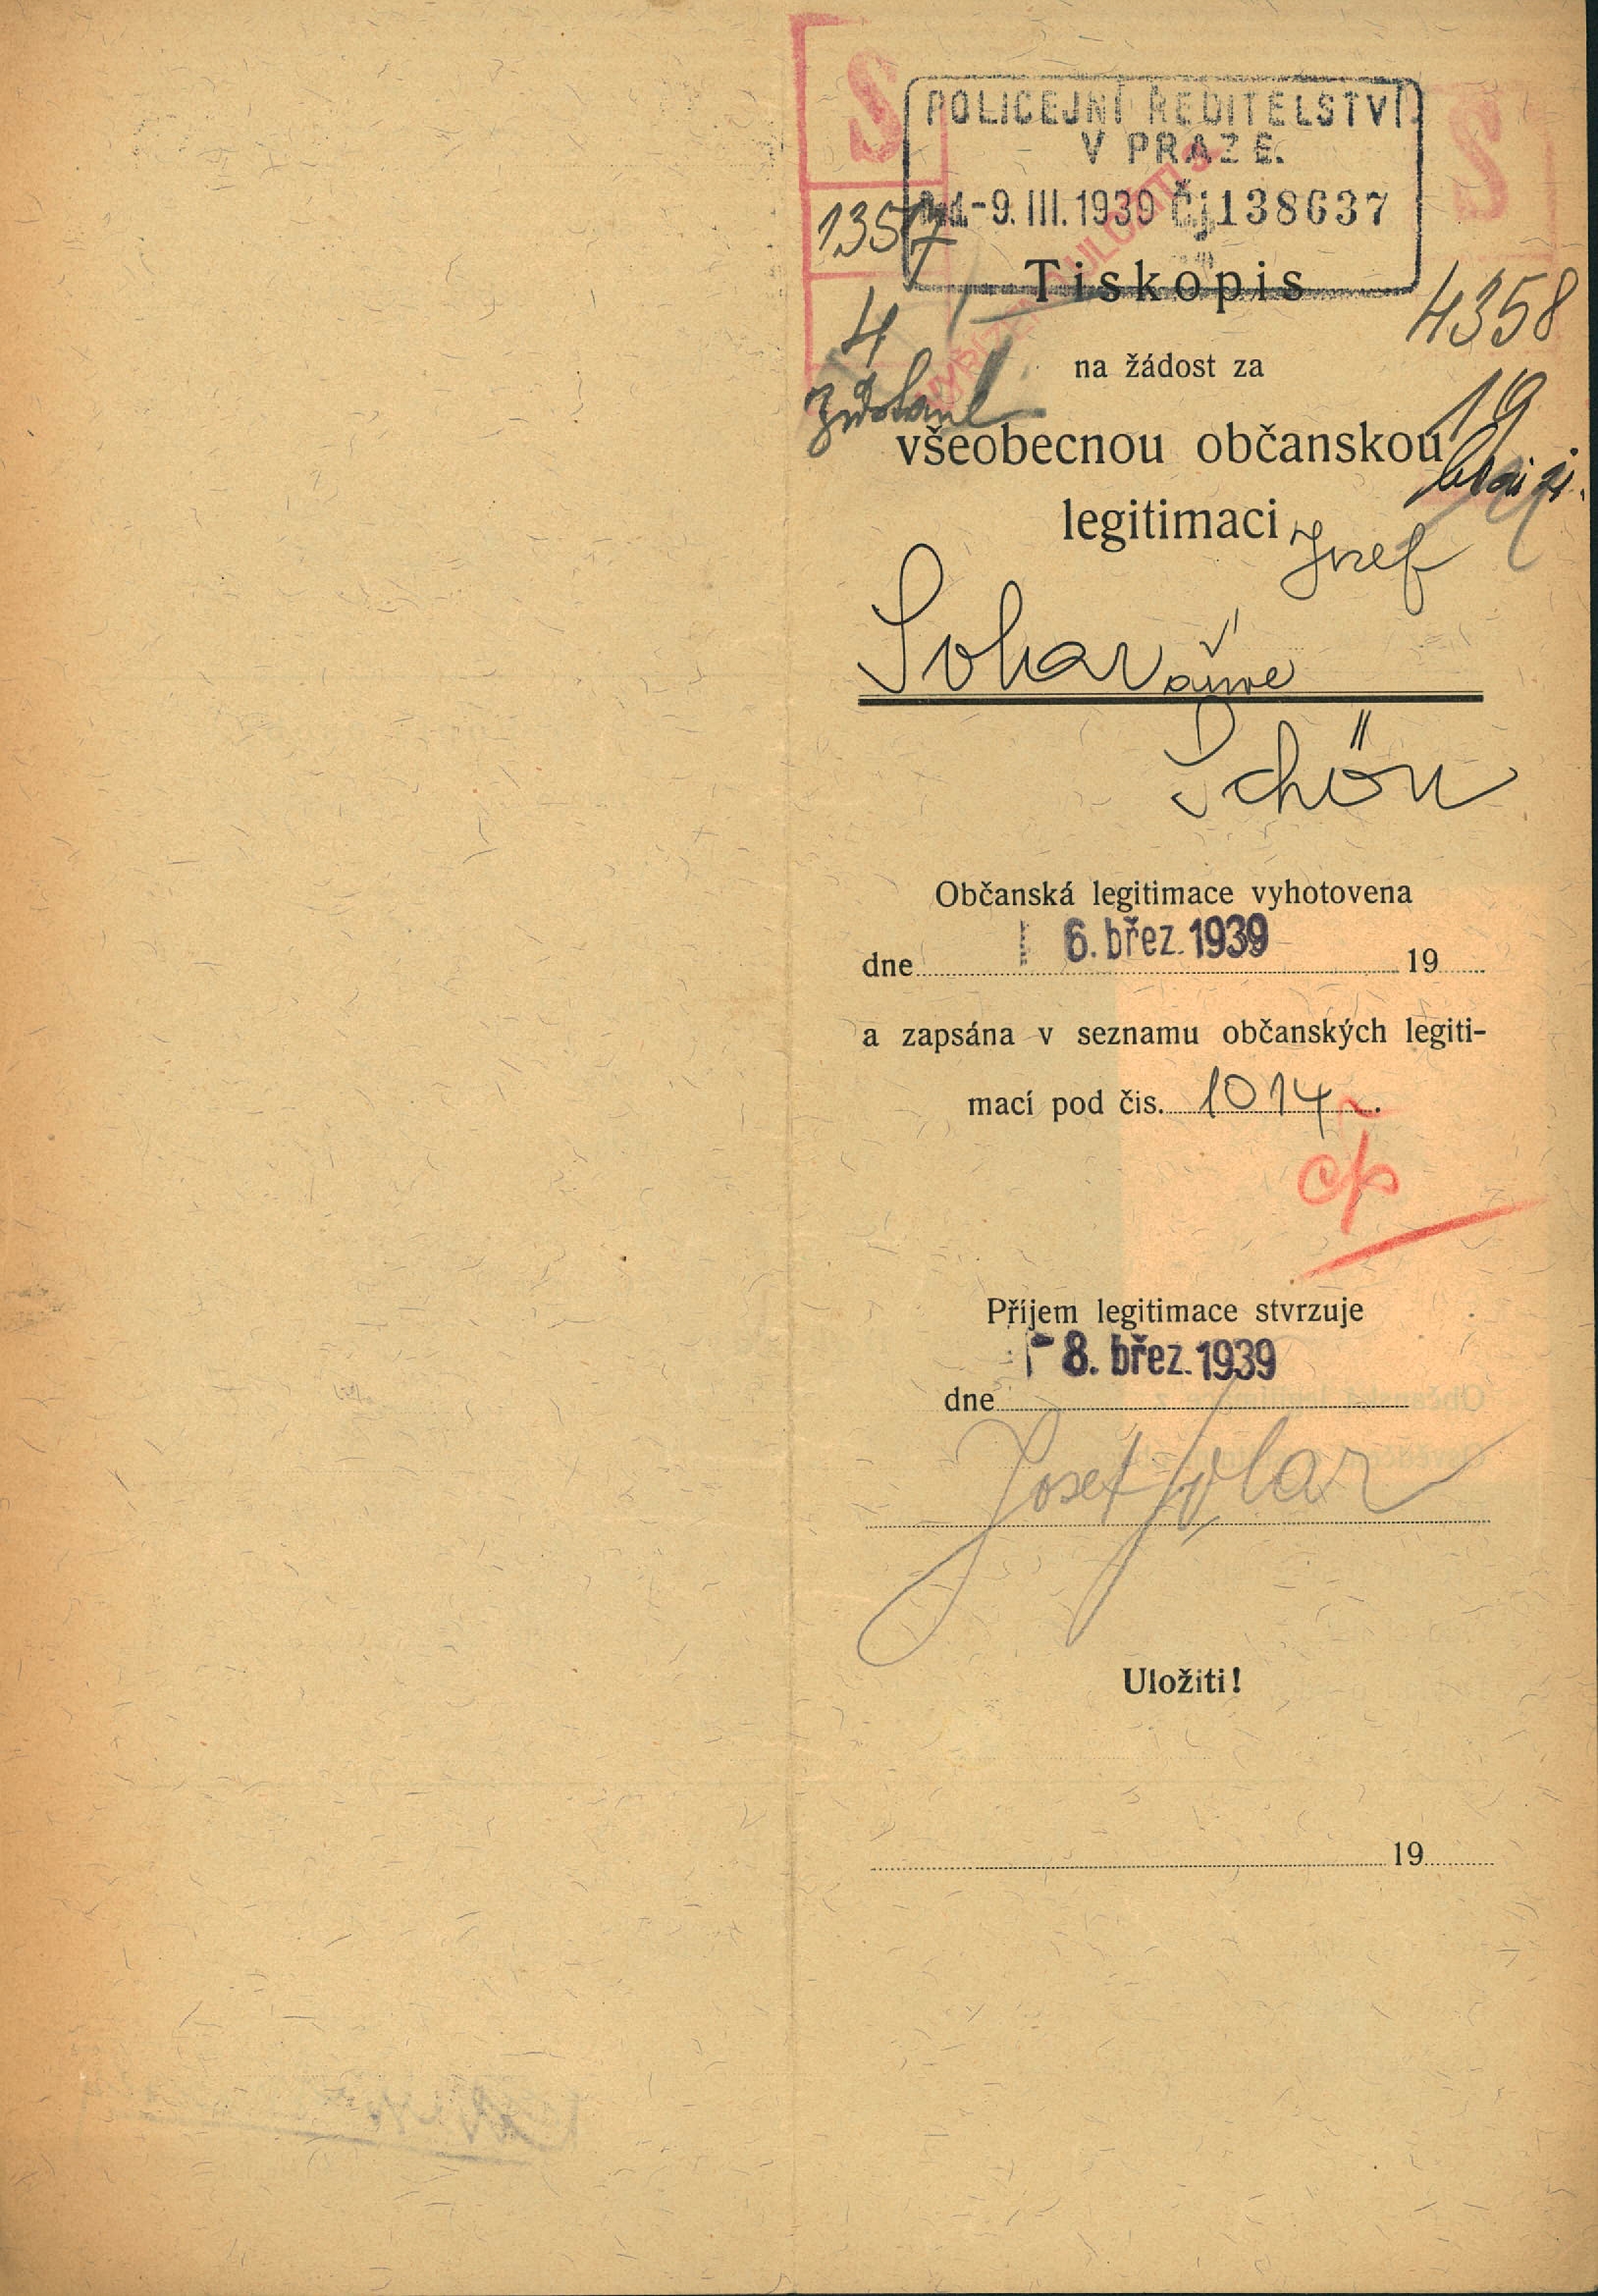 S
S
POLICEJNÍ ŘEDITELSTVÍ
V PRAZE.
-9. III. 1939 Čj 138637
1357
Tiskopis
4
4358
na žádost za
19
všeobecnou občanskou
legitimaci
Josef
Schön
Občanská legitimace vyhotovena
dne 6. břez. 1939 19
a zapsána v seznamu občanských legiti-
mací pod čis. 1014
čp
Příjem legitimace stvrzuje
dne - 8. břez. 1939
Josef
Uložiti!
19